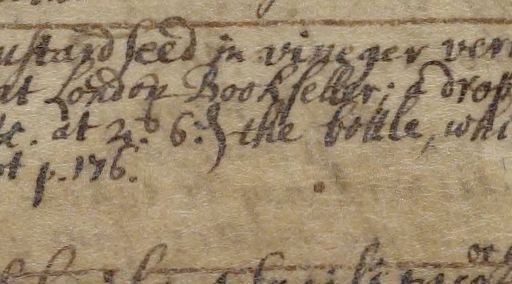 ustard seed in vineger ver
at London Bookseller; a drop
&c. at 2s 6d} the bottle, whi
p. 176.